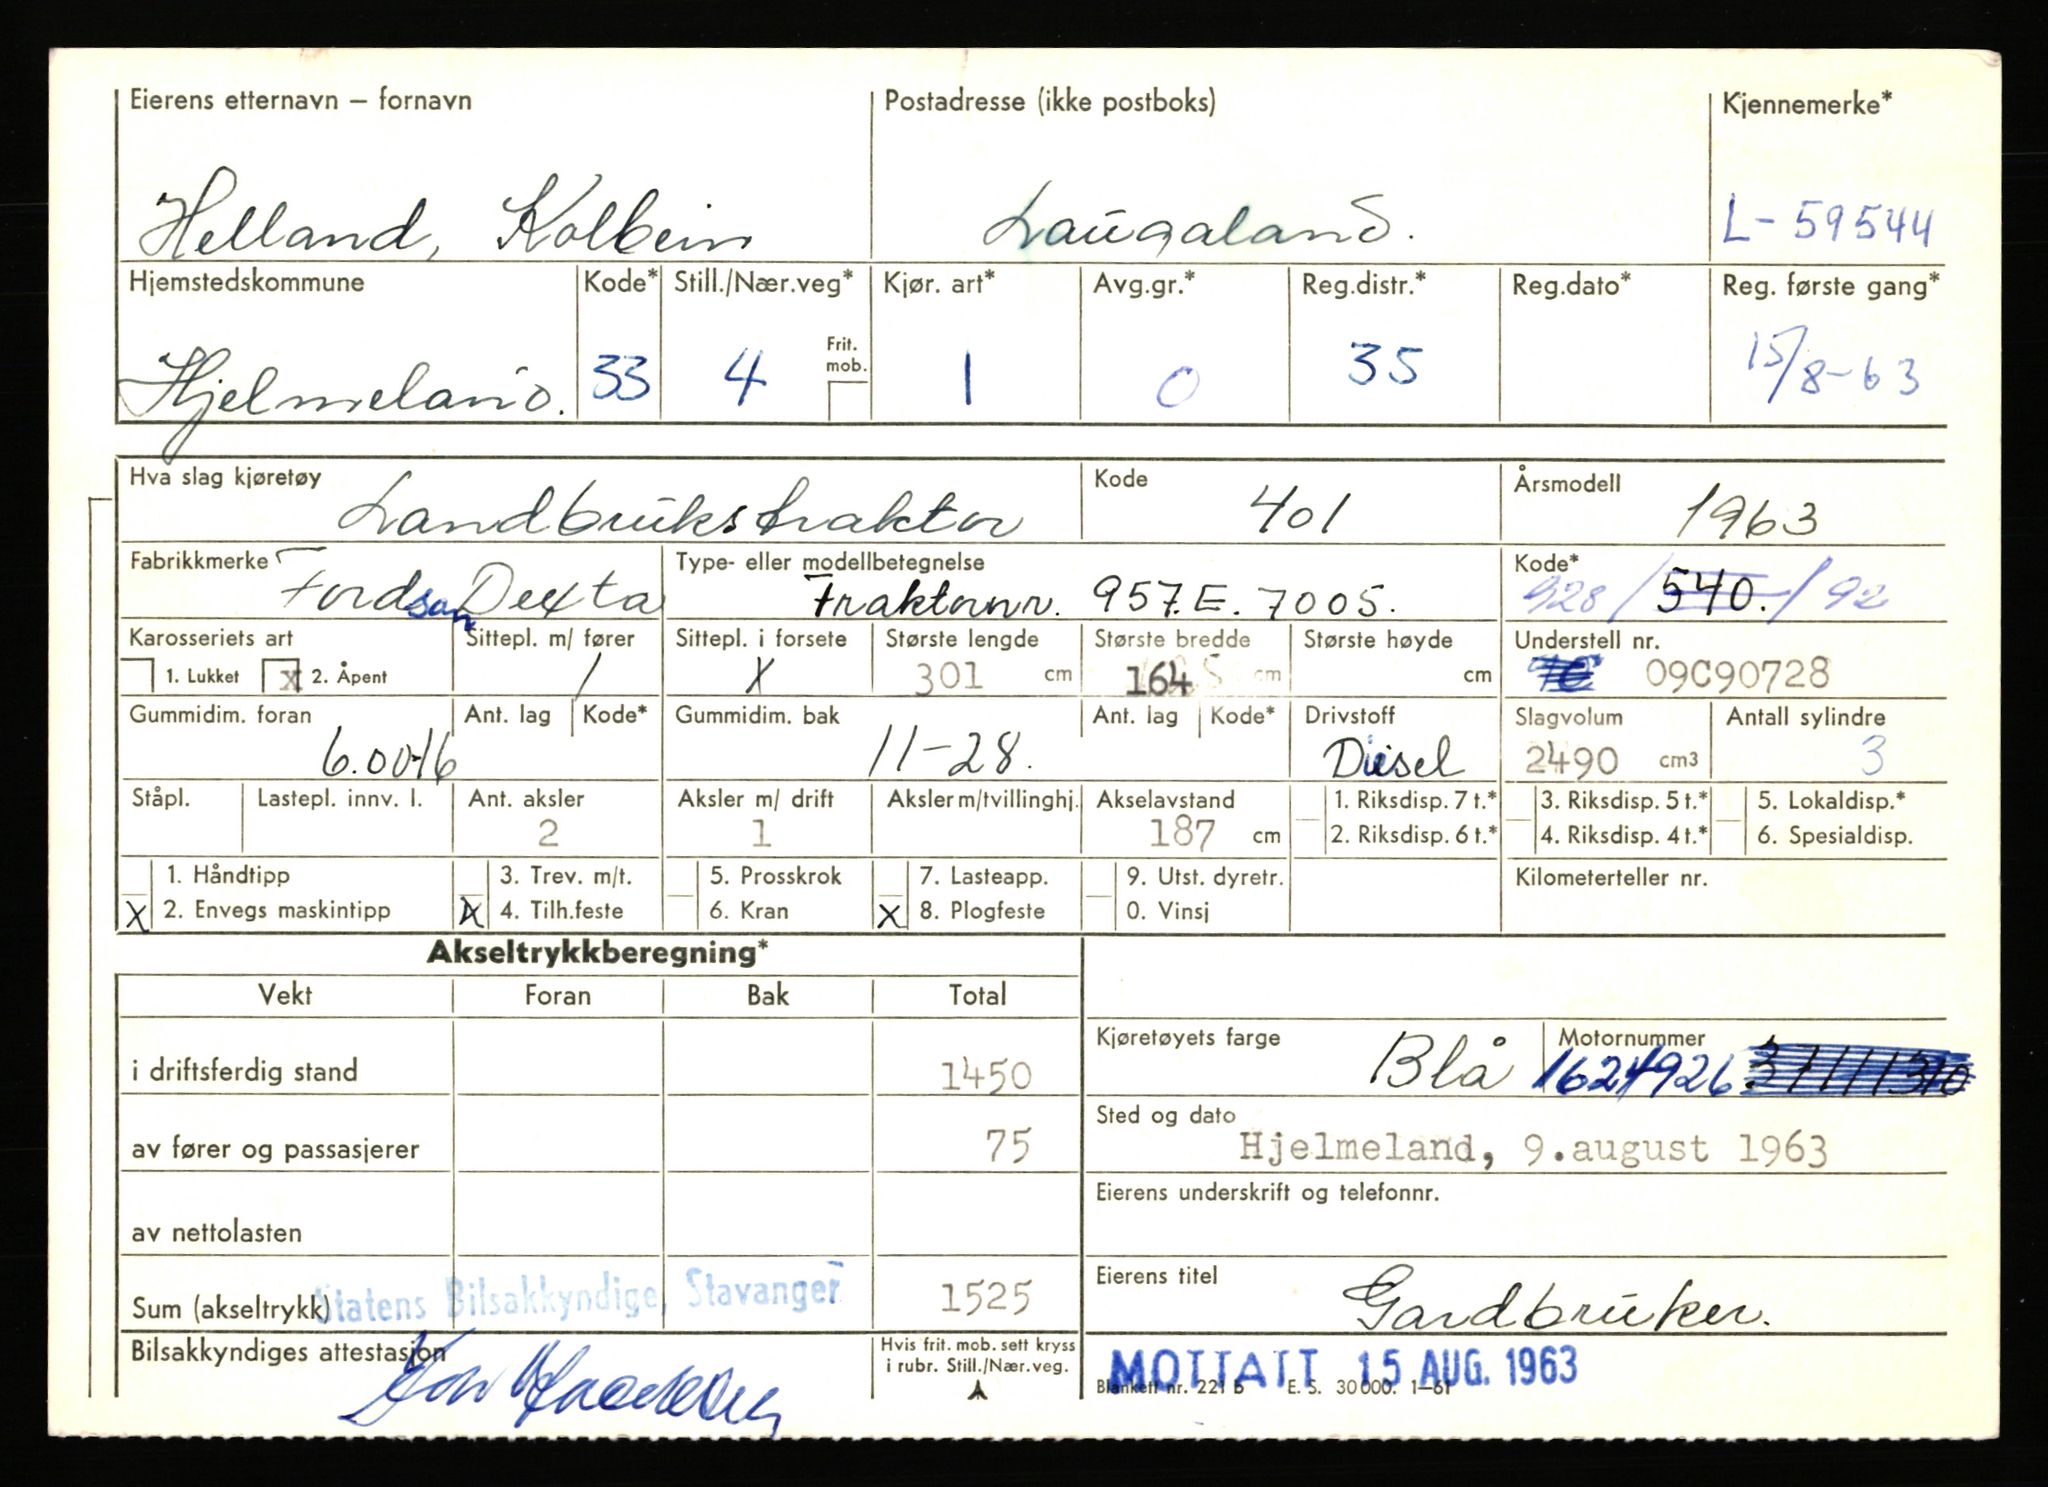 Eierens etternavn – fornavn Postadresse (ikke postboks) Kjennemerke*
Helland, Kolbein Laugaland. L-59544
Hjemstedskommune Kode* Still./Nær.veg* Kjør. art* Avg.gr.* Reg.distr.* Reg.dato* Reg. første gang*
Hjelmeland. 33 4 Frit. mob. 1 0 35 15/8-63
Hva slag kjøretøy Kode Årsmodell
Landbrukstraktor 401 1963
Fabrikkmerke Type- eller modellbetegnelse Kode*
Fordson Dexta Traktornr. 957.E.7005. 928/540./92
Karosseriets art Sittepl. m/ fører Sittepl. i forsete Største lengde Største bredde Største høyde Understell nr.
1. Lukket x 2. Åpent 1 X 301 cm 164 cm cm 09C90728
Gummidim. foran Ant. lag Kode* Gummidim. bak Ant. lag Kode* Drivstoff Slagvolum Antall sylindre
6.00-16 11-28. Diesel 2490 cm3 3
Ståpl. Lastepl. innv. l. Ant. aksler Aksler m/ drift Aksler m/tvillinghj. Akselavstand 1. Riksdisp. 7 t.* 3. Riksdisp. 5 t.* 5. Lokaldisp.*
2 1 187 cm 2. Riksdisp. 6 t.* 4. Riksdisp. 4 t.* 6. Spesialdisp.
1. Håndtipp 3. Trev. m/t. 5. Prosskrok 7. Lasteapp. 9. Utst. dyretr. Kilometerteller nr.
X 2. Envegs maskintipp X 4. Tilh.feste 6. Kran X 8. Plogfeste 0. Vinsj
Akseltrykkberegning*
Vekt Foran Bak Total
Kjøretøyets farge Blå Motornummer
i driftsferdig stand 1450 1624926
Sted og dato
av fører og passasjerer 75 Hjelmeland, 9.august 1963
Eierens underskrift og telefonnr.
av nettolasten
Eierens titel
Sum (akseltrykk) Statens Bilsakkyndige, Stavanger 1525 Gardbruker.
Bilsakkyndiges attestasjon Hvis frit. mob. sett kryss
i rubr. Still./Nær.veg.
MOTTATT 15 AUG. 1963
Blankett nr. 221 b E. S. 30 000. 1–61